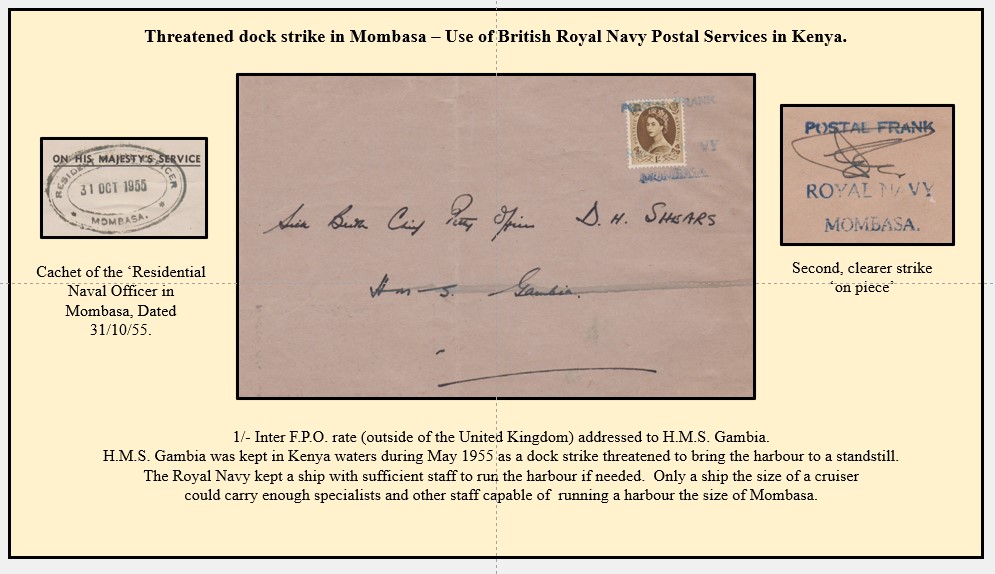 Threatened dock strike in Mombasa – Use of British Royal Navy Postal Services in Kenya.
ON HIS MAJESTY'S SERVICE
RESIDENT OFFICER
31 OCT 1955
MOMBASA.
Cachet of the ‘Residential
Naval Officer in
Mombasa, Dated
31/10/55.
POSTAL FRANK
VY
MOMBASA
Sick Berth Chief Petty Officer D. H. SHEARS
H.M.S. Gambia.
POSTAL FRANK
ROYAL NAVY
MOMBASA.
Second, clearer strike
‘on piece’
1/- Inter F.P.O. rate (outside of the United Kingdom) addressed to H.M.S. Gambia.
H.M.S. Gambia was kept in Kenya waters during May 1955 as a dock strike threatened to bring the harbour to a standstill.
The Royal Navy kept a ship with sufficient staff to run the harbour if needed. Only a ship the size of a cruiser
could carry enough specialists and other staff capable of running a harbour the size of Mombasa.